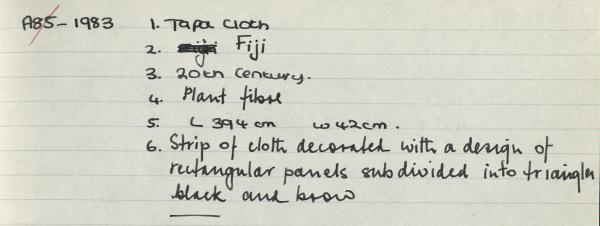 A85-1983 1. Tapa cloth
2. Fiji
3. 20th century.
4. Plant fibre
5. L 394 cm w 42 cm.
6. Strip of cloth decorated with a design of
rectangular panels subdivided into triangles
black and brow